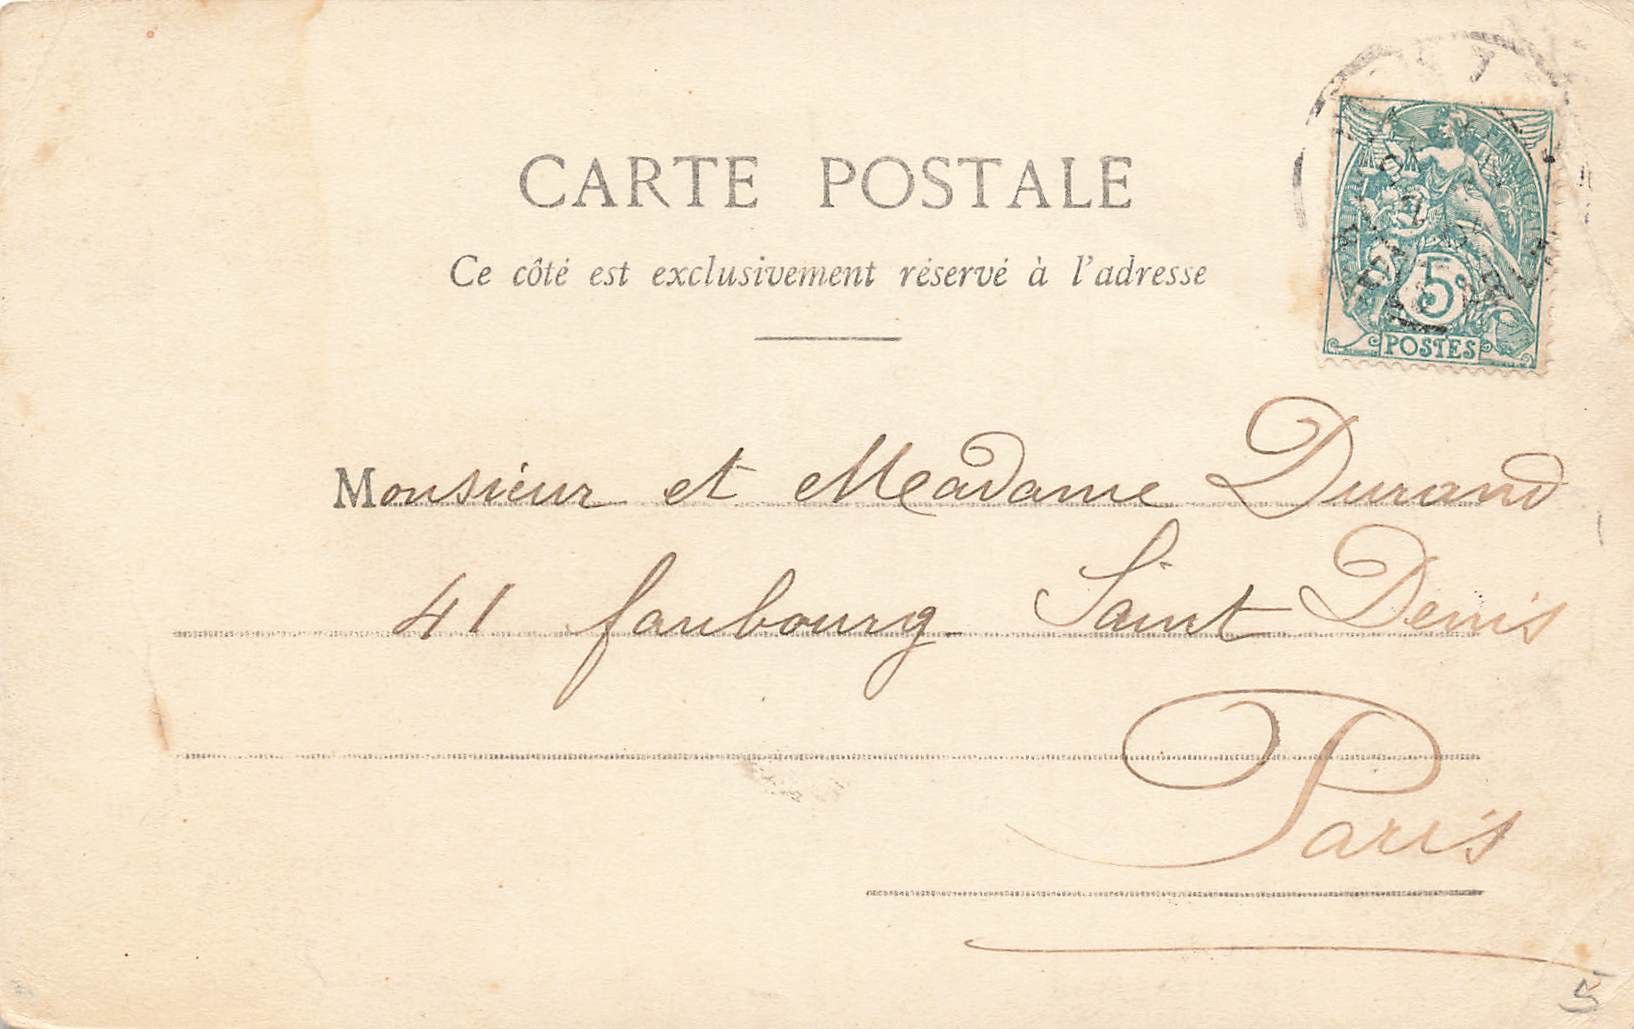 CARTE POSTALE
Ce côté est exclusivement réservé à l'adresse
5
POSTES
Monsieur et Madame Durand
41 faubourg Saint Denis
Paris
5